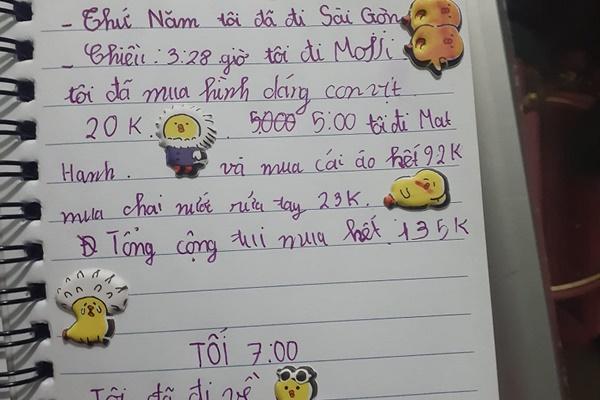 - Thứ Năm tôi đã đi Sài Gòn
- Chiêìi : 3:28 giờ tôi đi Moffi
tôi đã mua hình dáng con vịt
20 K. 5000 5:00 tôi đi Mat
Hanh . và mua cái áo hết 92K
mua chai nước rửa tay 23K.
Tổng cộng tui mua hết 135K
TỐI 7:00
Tôi đã đi về